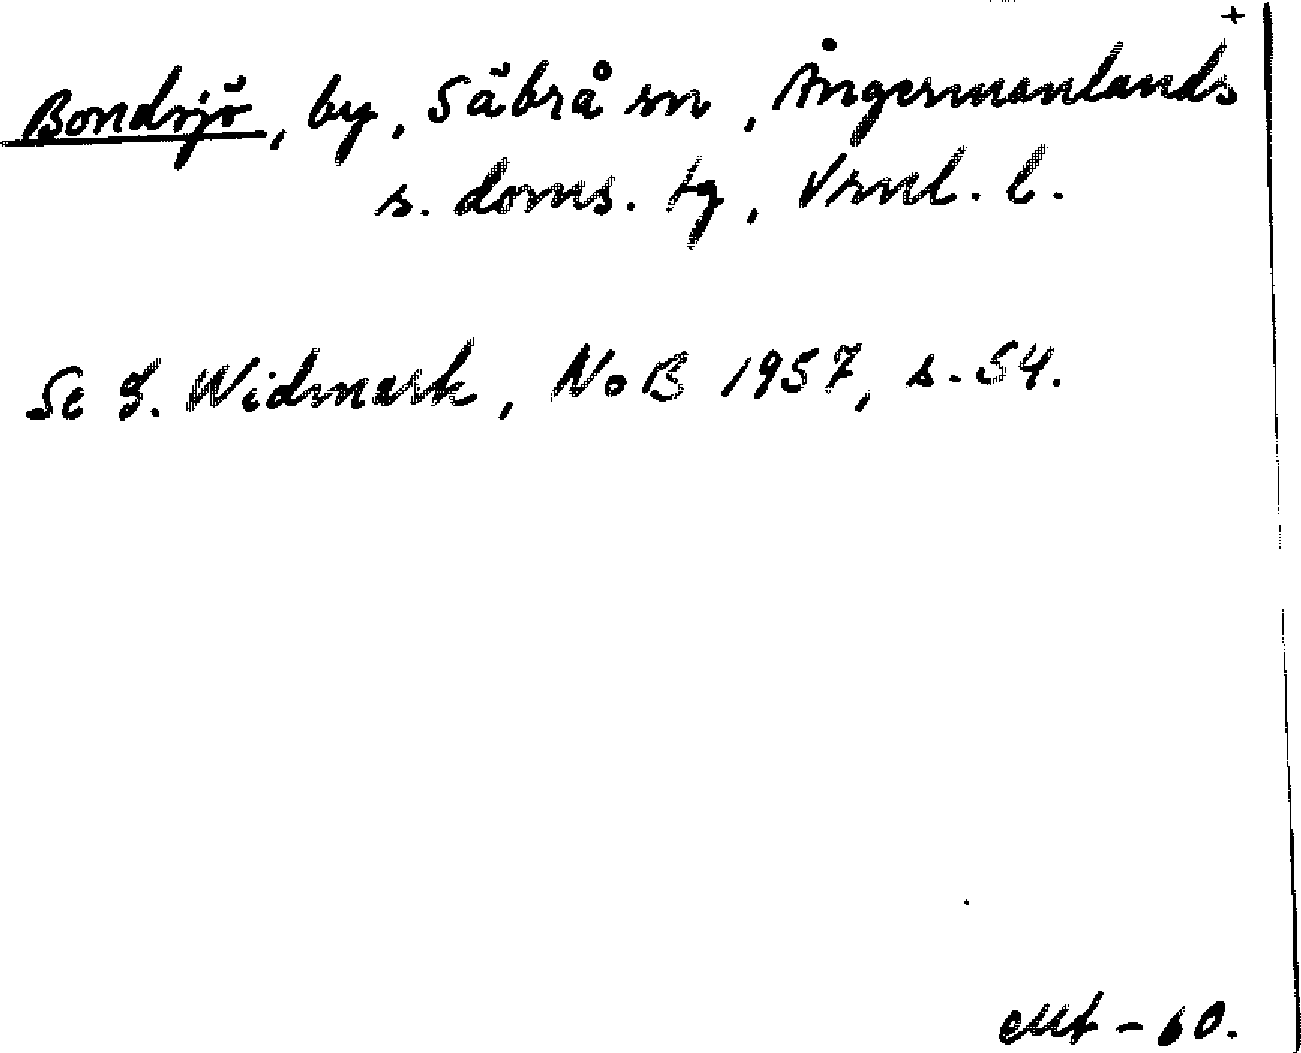 +
Bondsjö, by, Säbrå sn, Ångermanlands
s. doms. tg, Vrnl. l.
Se G. Widmark, NoB 1957, s. 54.
-60.